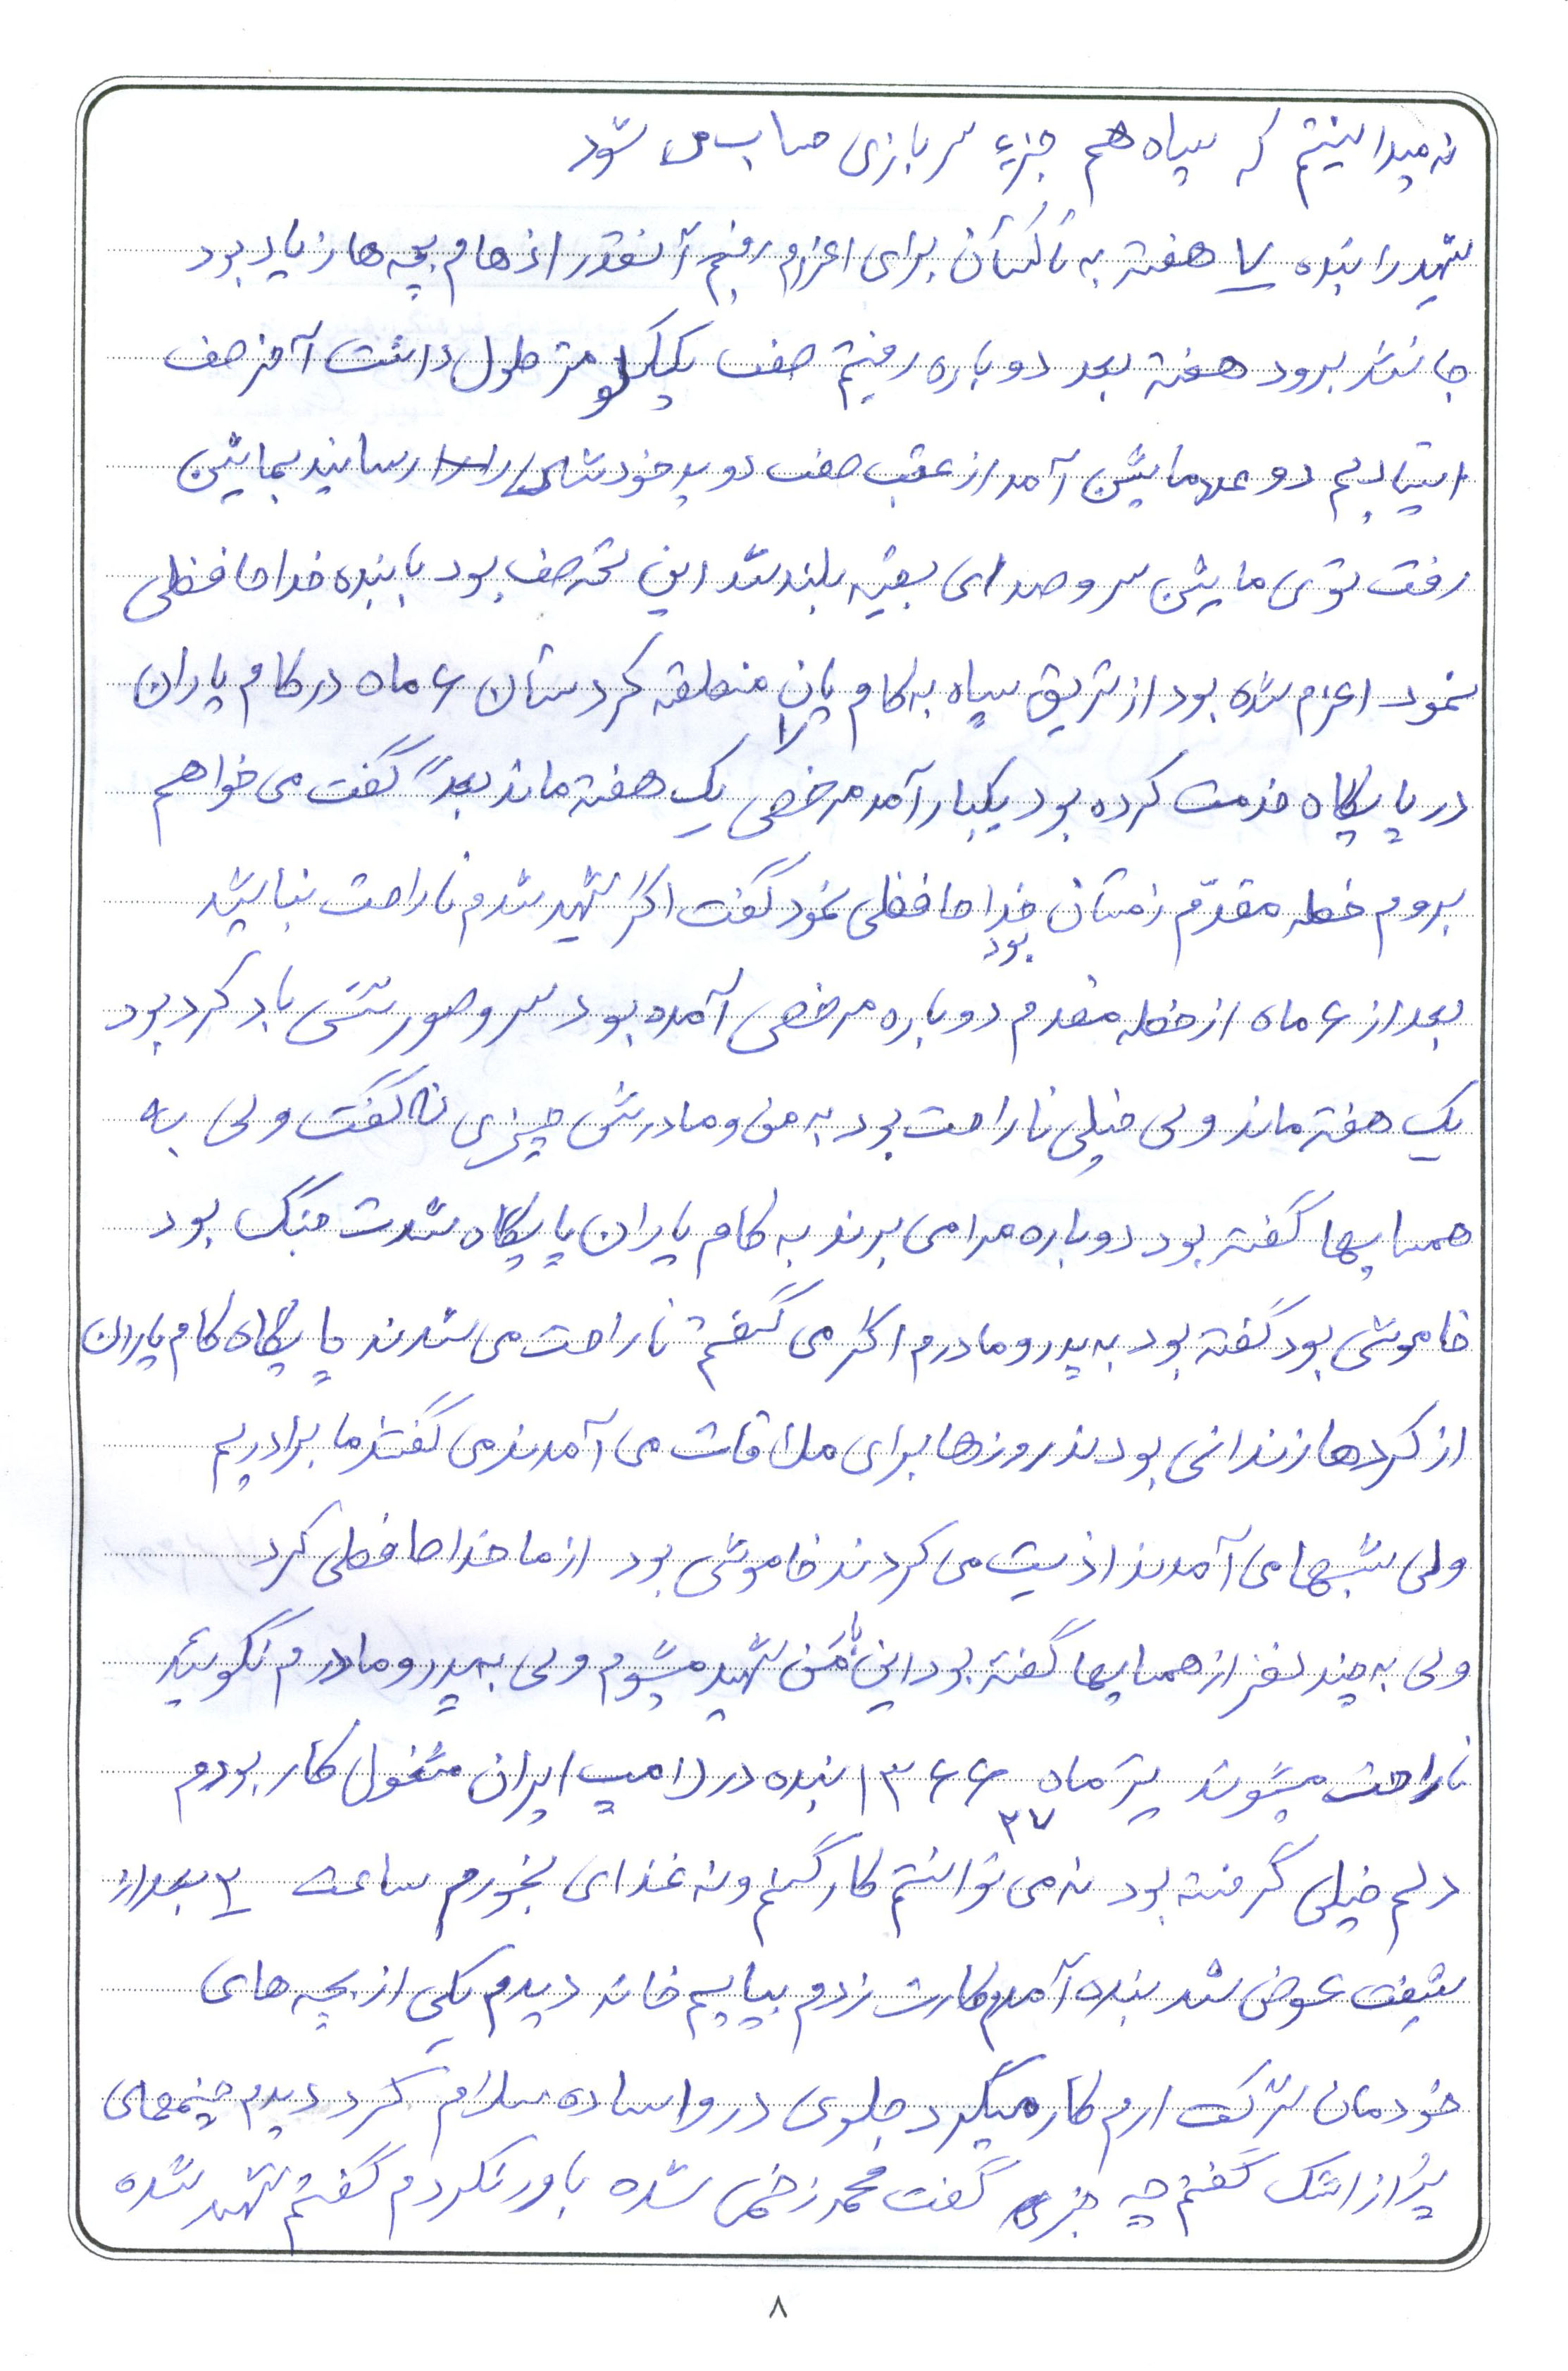 نه میدانیتم که سپاه هم جزء سربازی حساب می شود
شهید را بنده ۷ هفته به تاکستان برای اعزام رفتم آنقدر ازهام بچه ها زیاد بود
جا نشد برود هفته بعد دوباره رفتیم صف یککیلو متر طول داشت آخر صف
ایتادیم دو عدد ماشین آمد از عقب صف دوید خودش را رسانید بماشین
رفت توی ماشین سر و صدای بقیه بلند شد این ته صف بود با بنده خداحافظی
نمود اعزم شده بود از تریق سپاه به کام یاران منطقه کردستان ۶ ماه در کام یاران
در پایگاه خدمت کرده بود یکبار آمد مرخصی یک هفته ماند بعداً گفت می خواهم
بروم خطه مقدّم زمستان بود خداحافظی نمود گفت اگر شهید شدم ناراحت نباشید
بعد از ۶ ماه از خطه مقدم دوباره مرخصی آمده بود سر و صورتش باد کرد بود
یک هفته ماند ولی خیلی ناراحت بود به من و مادرش چیزی نا گفت ولی به
همسایها گفته بود دوباره مرا می برند به کام یاران پایگاه شدت جنگ بود
خاموشی بود گفته بود به پدر و مادرم اگر می گفتم ناراحت می شدند پایگاه کام یاران
از کردها زندانی بودند روزها برای ملاقات می آمدند می گفتند ما برادریم
ولی شبها می آمدند اذیت می کردند خاموشی بود از ما خداحافظی کرد
ولی به چند نفر از همسایها گفته بود این با من شهید میشوم ولی به پدر و مادرم نگوئید
ناراحت میشوند تیر ماه ۱۳۶۶ ۲۷ بنده در (رامپ) ایران مشغول کار بودم
دلم خیلی گرفته بود نه می توانستم کار کنم و نه غذای بخورم ساعت ۲ بعد از
شیفت عوض شد بنده آمدم کارت زدم بیایم خانه دیدم یکی از بچه های
خودمان شرکت ارم کار میگرد جلوی در واساده سلام کرد دیدم چشمهای
پُر از اشک گفتم چه خبر گفت محمد زخمی شده باور نکردم گفتم شهید شده
۸